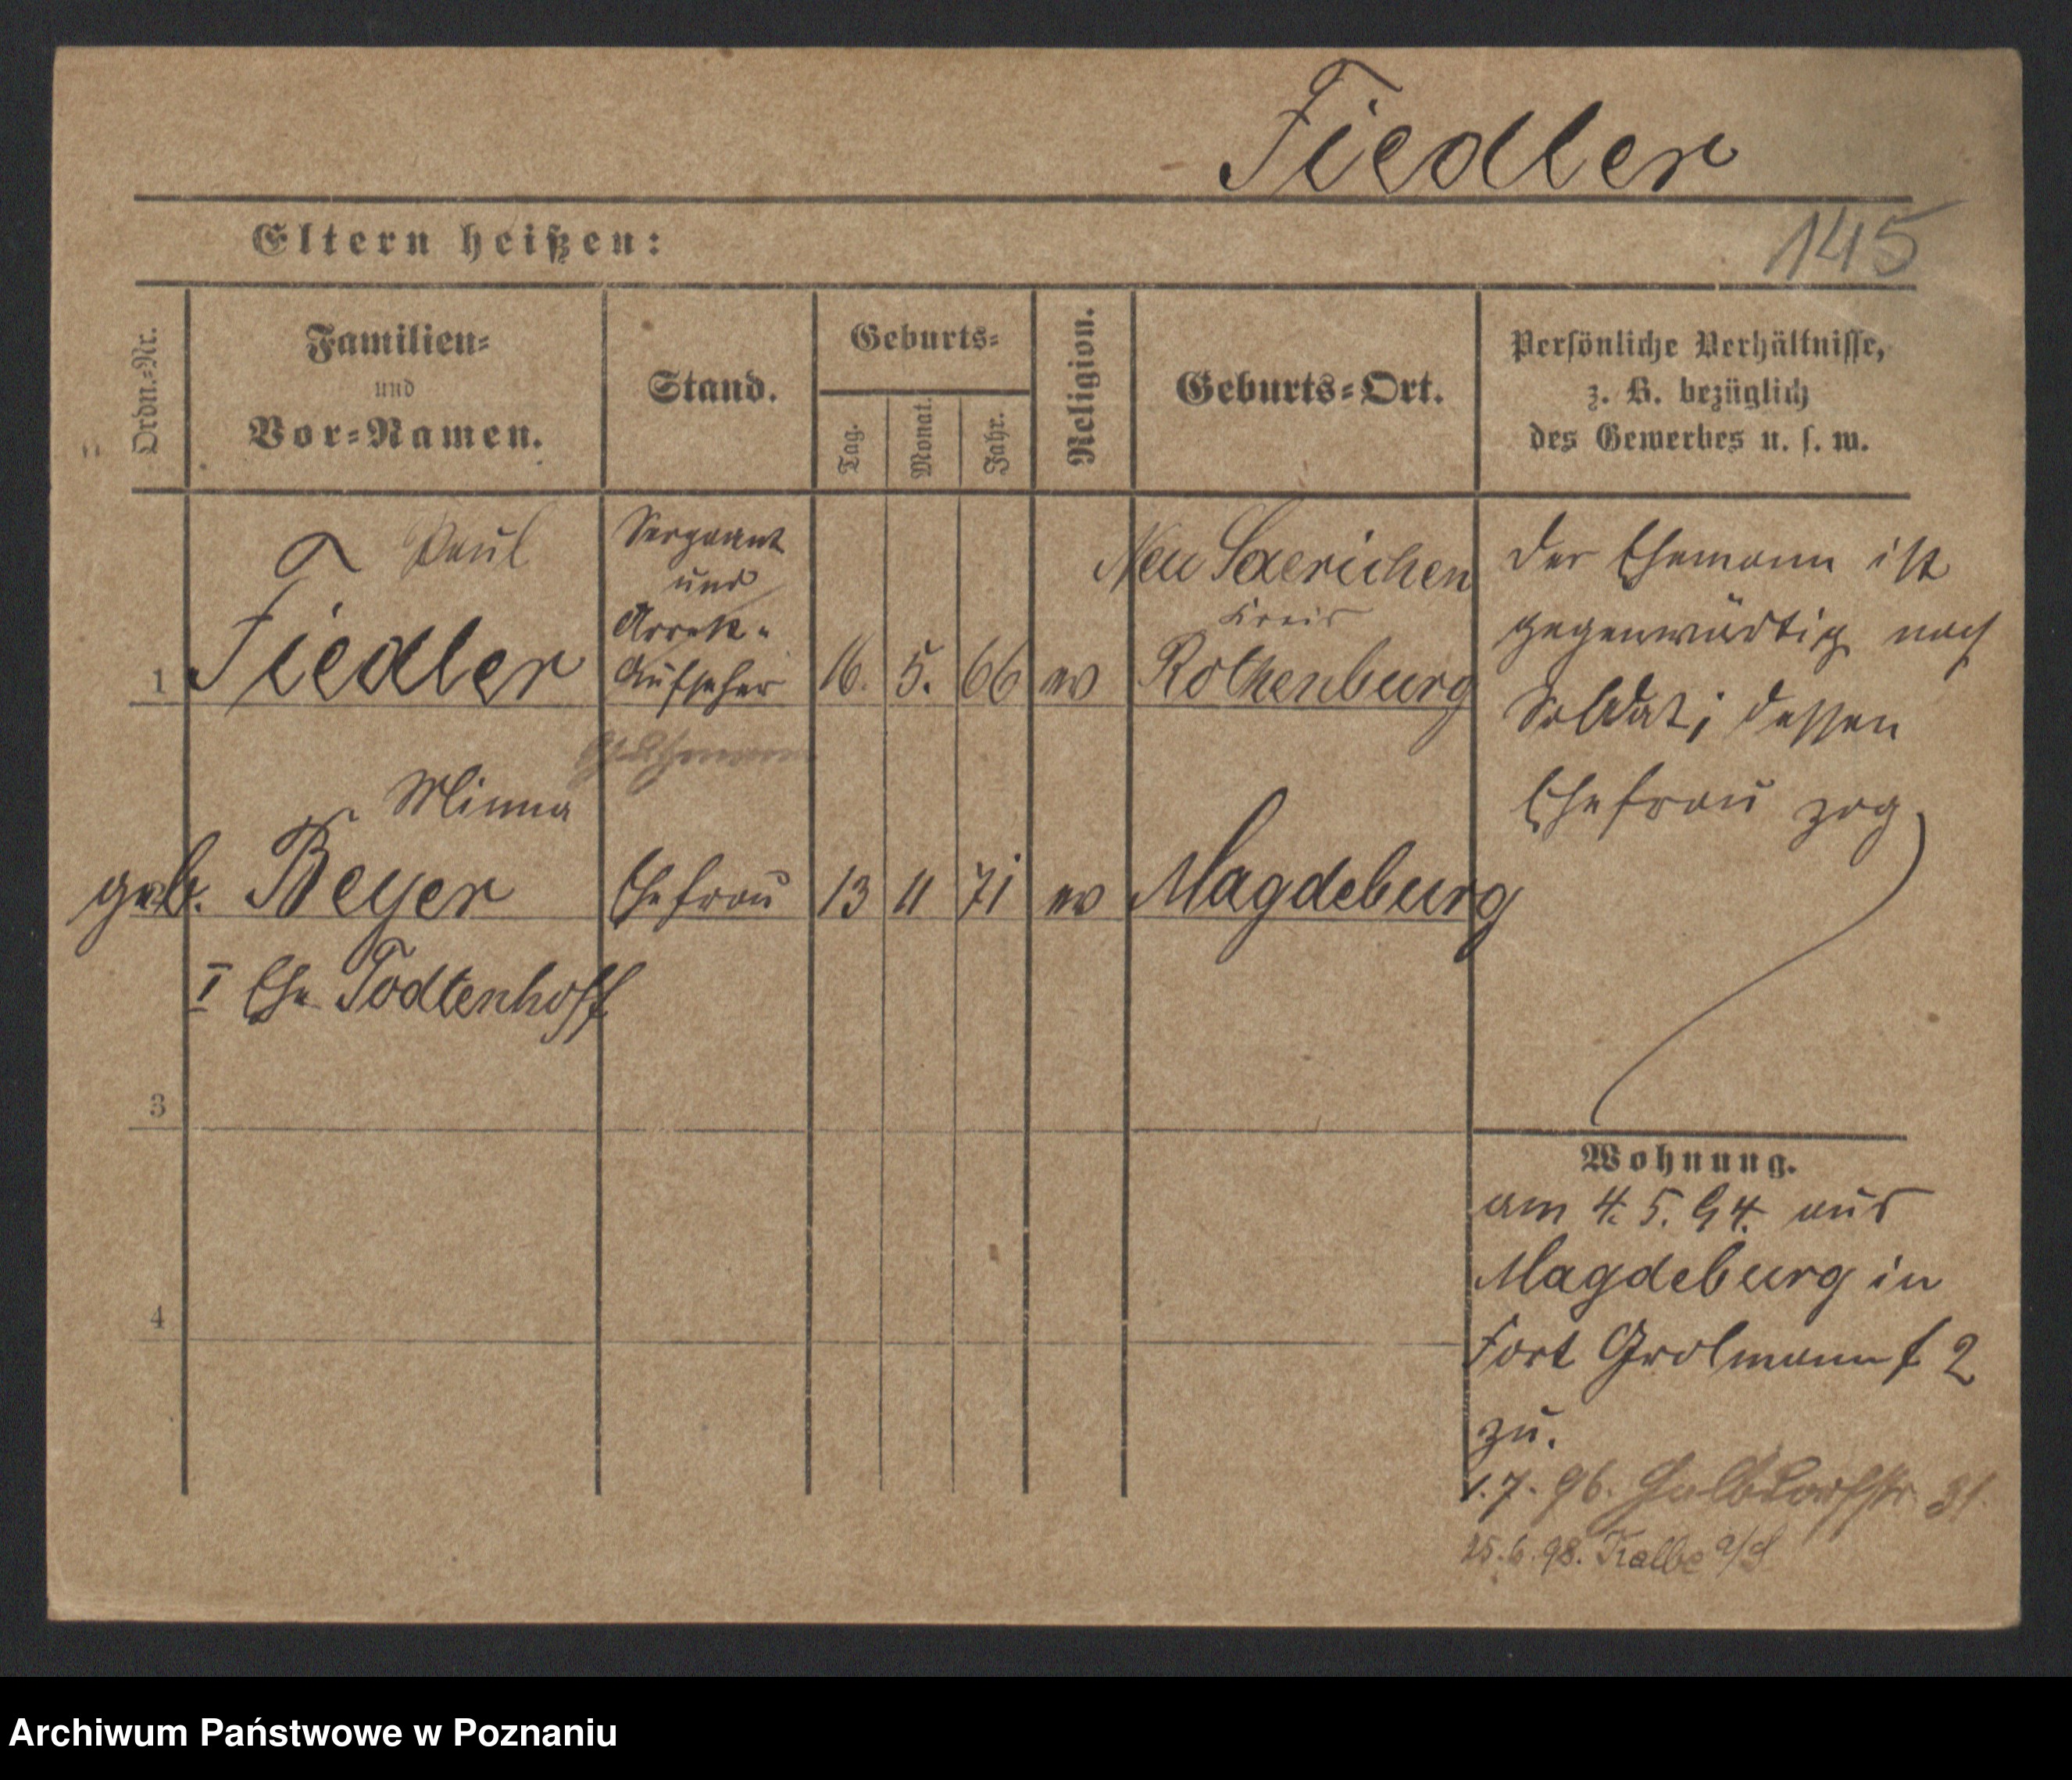 Fiedler
145
Eltern heißen:
Ordn.-Nr.
Familien-
und
Vor-Namen.
Stand.
Geburts-
Tag.
Monat.
Jahr.
Religion.
Geburts-Ort.
Persönliche Verhältnisse,
z. B. bezüglich
des Gewerbes u. s. w.
1
Paul
Fiedler
Sergeant
und
Arrest-
Aufseher
16. 5. 66 ev
Neu Saerichen
Kreis
Rothenburg
Der Ehemann ist
gegenwärtig noch
Soldat; dessen
Ehefrau zog
Minna
geb. Beyer
Ehefrau
13 11 71 ev
Magdeburg
I Ehe Todtenhoff
3
4
Wohnung.
am 4. 5. 94. aus
Magdeburg in
Fort Grolmann f 2
zu.
1. 7. 96. 31.
25. 6. 98. Kalbe a/S
Archiwum Państwowe w Poznaniu